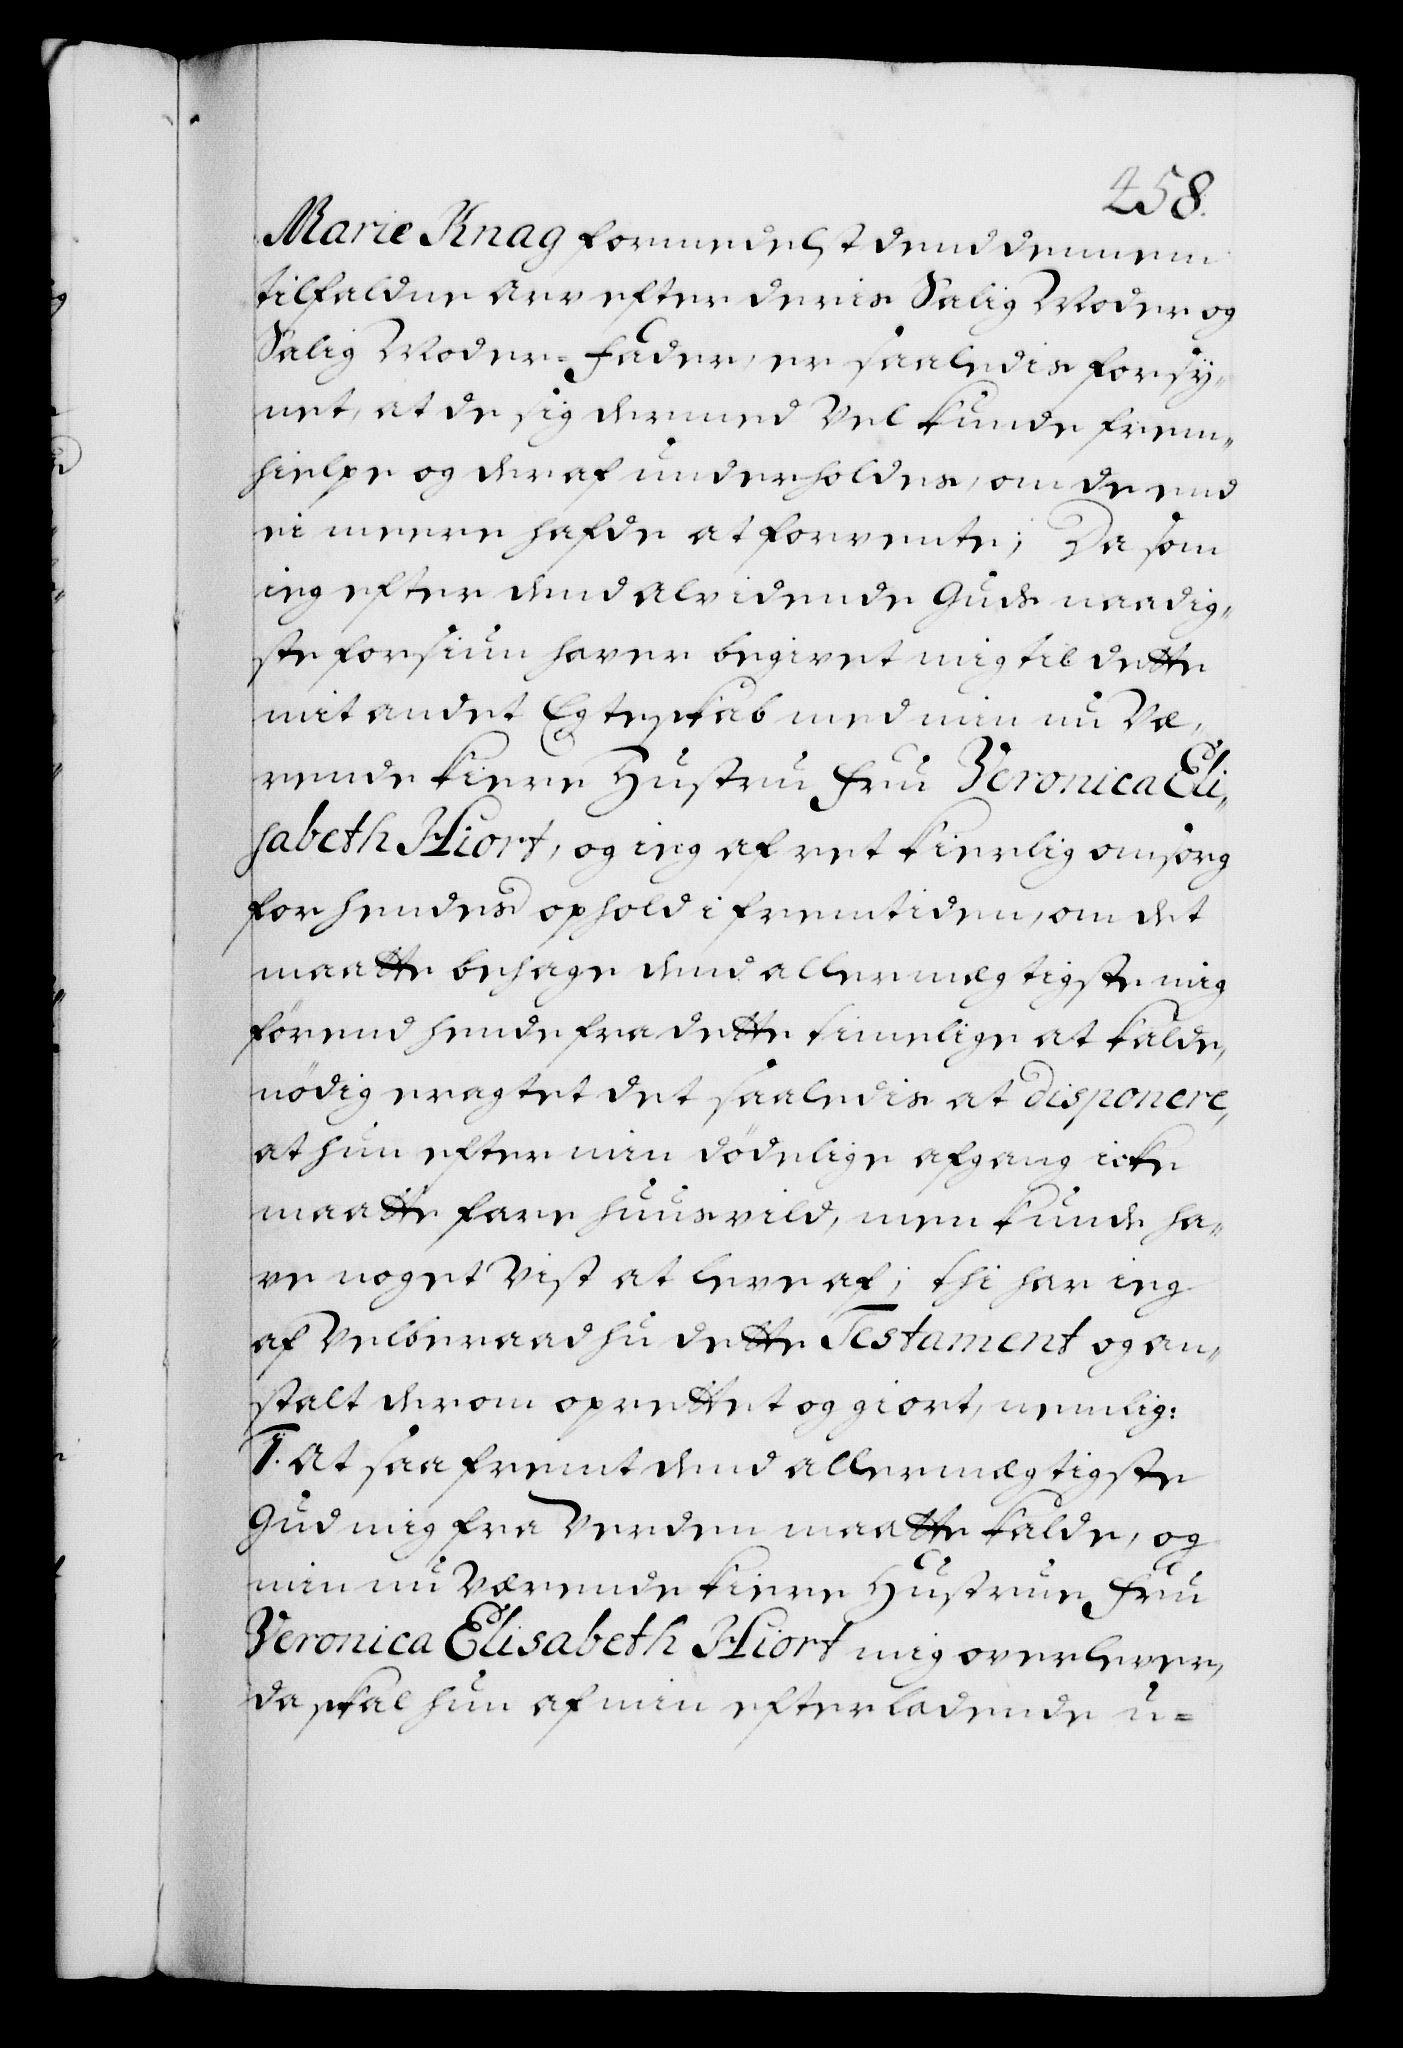 458.
Marie Knag formedelst dend dennem
tilfaldne Arv efter deris Salig Moder og
Salig Moder-Fader, er saaledis forsÿ-
net, at de sig dermed vel kunde frem-
hielpe og deraf underholdes, om de end
ei meere hafde at forvente; Da som
ieg efter dend Alvidende Guds naadig-
ste forsiun haver begivet mig til dette
mit andet Egteskab med min nu Væ-
rende kiere Hustru Fru Veronica Eli-
sabeth Hiort, og ieg af ret kierlig omsorg
for hendes ophold i fremtiden, om det
maatte behage dend allermægtigste mig
förend hende fra dette timelige at kalde,
nödig eragtet det saaledis at disponere,
at hun efter min dödelige afgang icke
maatte fare huusvild, men kunde ha-
ve noget Vist at leve af; thi har ieg
af Velberaad hu dette Testament og an-
stalt derom oprettet og giort, nemlig:
1. At saafremt dend allermægtigste
Gud mig fra Verden maatte kalde, og
min nu Værende kiere Hustrue Fru
Veronica Elisabeth Hiort mig overlever,
da skal hun af min efterladende u-